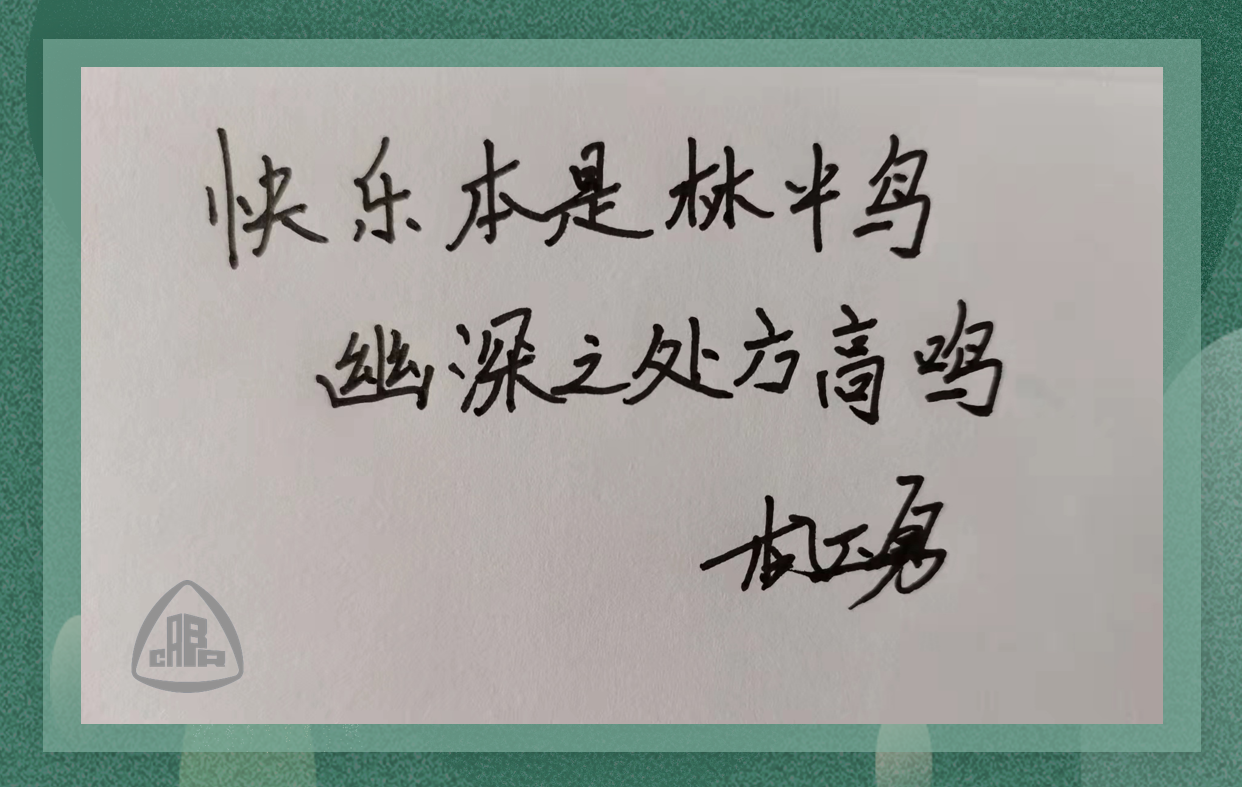 快乐本是林半鸟
幽深之处方高鸣
CABR